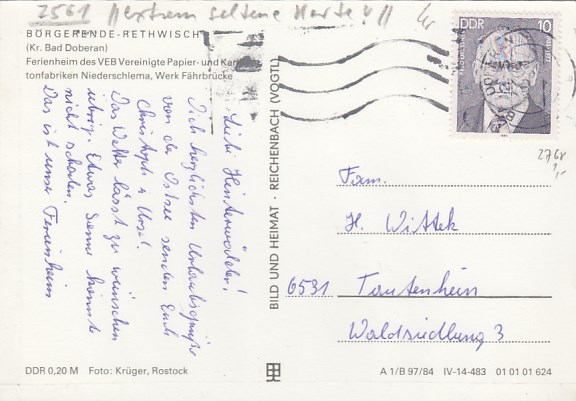 2561 !!extrem seltene Marke!!!
BÖRGERENDE-RETHWISCH
(Kr. Bad Doberan)
Ferienheim des VEB Vereinigte Papier- und Kar-
tonfabriken Niederschlema, Werk Fährbrücke
DDR 10
Liebe Hinterwäldler!
Die herzlichsten Urlaubsgrüße
von der Ostsee senden Euch
Christoph u. Ursel.
Das Wetter lässt zu wünschen
übrig. Etwas Sonne könnte
nicht schaden.
Das ist unser Ferienheim
BILD UND HEIMAT · REICHENBACH (VOGTL)
2768
Fam.
H. Wittek
6531 Tautenhein
Waldsiedlung 3
DDR 0,20 M Foto: Krüger, Rostock
A 1/B 97/84 IV-14-483 01 01 01 624